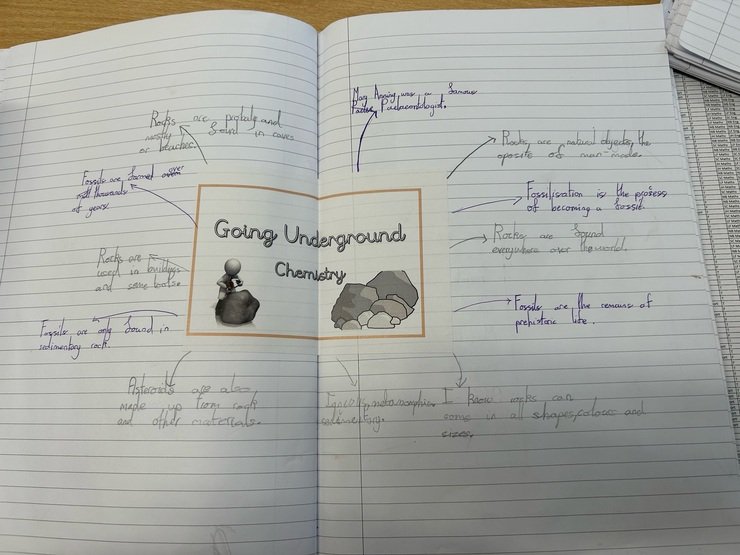 Rocks are probably and
mostly found in caves
or beaches.
Fossils are formed over
of thousands
of years.
Rocks are
used in buildings
and some
Fossils are only found in
sedimentary rock.
Asteroids are also
made up from rock
and other materials.
Going Underground
Chemistry
Mary Anning was a famous
Palaeontologist.
Rocks are natural objects, the
oposite of man-made.
Fossilisation is the process
of becoming a fossil.
Rocks are found
everywhere over the world.
Fossils are the remains of
prehistoric life.
Igneous, metamorphic
sedimentary.
I know rocks can
come in all shapes, colours and
sizes.